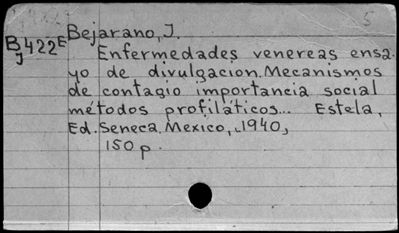 5
Bejarano, J.
B422E
J
Enfermedades venereas ensa-
yo de divulgacion. Mecanismos
de contagio importancia social
métodos profiláticos... Estela,
Ed. Seneca. Mexico, 1940,
150 p.